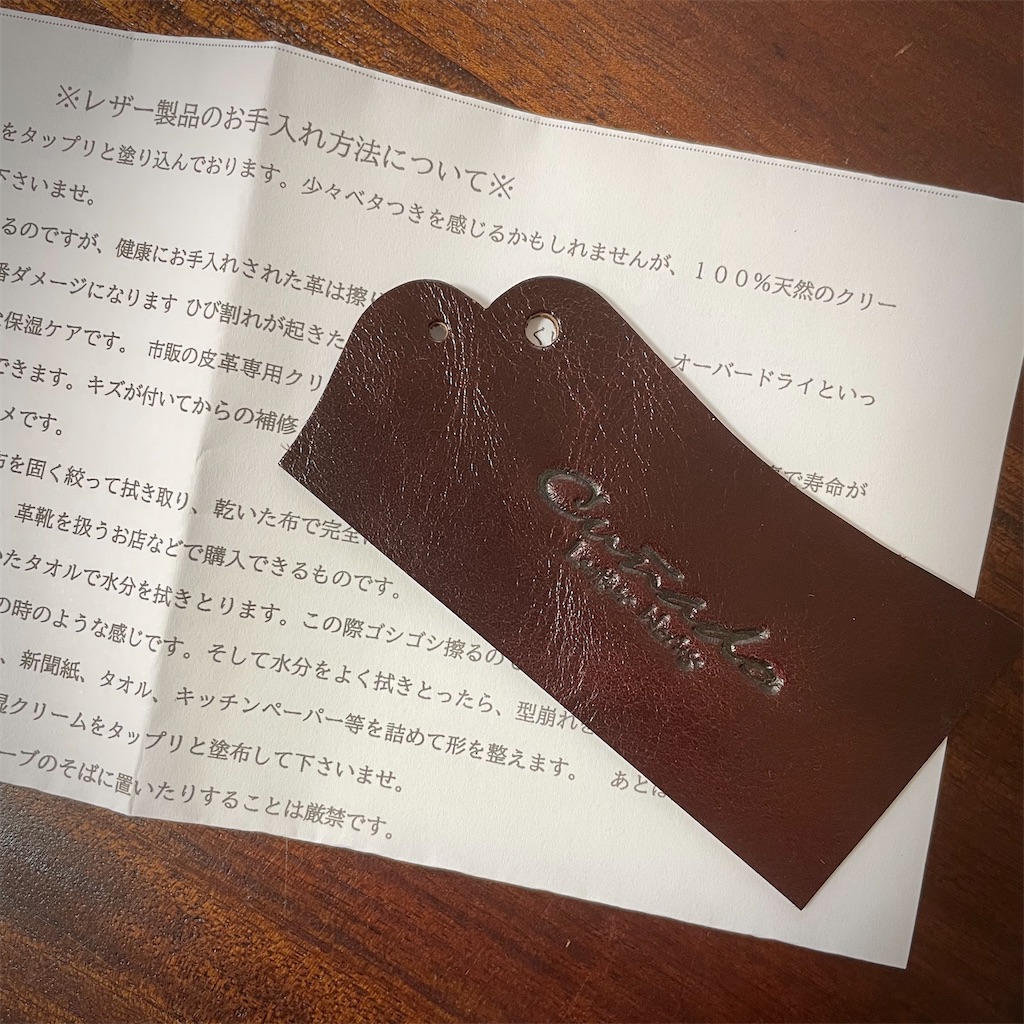 ※レザー製品のお手入れ方法について※
をタップリと塗り込んでおります。少々ベタつきを感じるかもしれませんが、１００％天然のクリー
下さいませ。
るのですが、健康にお手入れされた革は擦り
オーバードライといっ
番ダメージになります ひび割れが起きた
な保湿ケアです。 市販の皮革専用クリ
で寿命が
できます。キズが付いてからの補修
メです。
布を固く絞って拭き取り、乾いた布で完全
革靴を扱うお店などで購入できるものです。
いたタオルで水分を拭きとります。この際ゴシゴシ擦るので
の時のような感じです。そして水分をよく拭きとったら、型崩れを
、新聞紙、タオル、キッチンペーパー等を詰めて形を整えます。 あとは
湿クリームをタップリと塗布して下さいませ。
ーブのそばに置いたりすることは厳禁です。